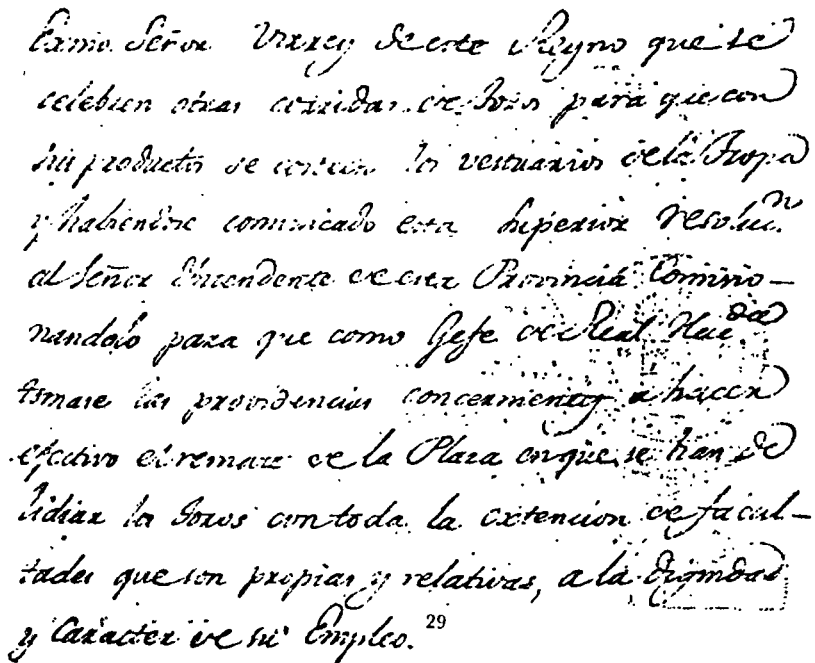 Exmo. Señor Virrey de este Reyno que se
celebren otras corridas de Toros para que con
sus productos se costeen los vestuarios de la Tropa
y habiendose comunicado esta Superior resoluc.n
al Señor Yntendente de esta Provincia Comisio-
nandolo para que como Gefe de Real Hac.da
tomase las providencias concernientes a hacer
efectivo el remate de la Plaza en que se han de
lidiar los Toros con toda la extencion de facul-
tades que son propias y relativas, a la dignidad
y Caracter de su Empleo. 29